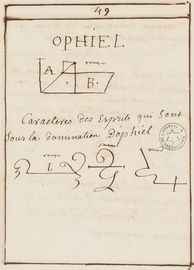 49
OPHIEL
rouge
A
B.
Caracteres des Esprits qui sont
sous la domination Dophiel
rouge